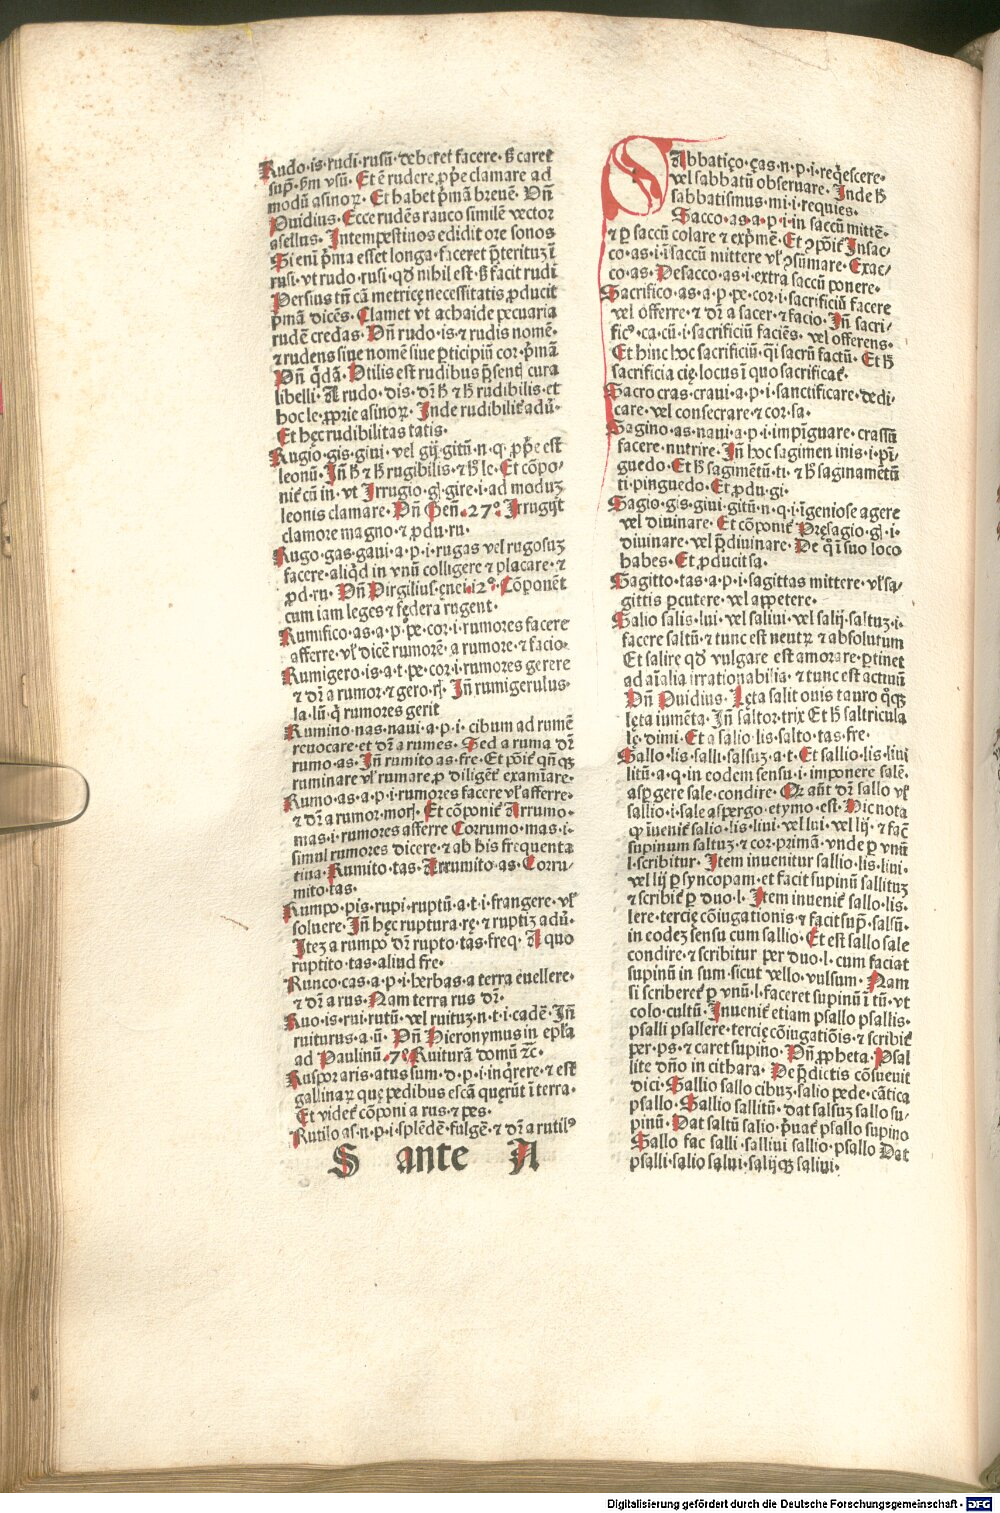 Rudo·is·rudi·rusū·deberet facere·ꝫ caret
sup̄·ẜm vsū· Et ē rudere ꝓp̄e clamare ad
modū asinoꝝ· Et habet p̄mā breuē· Vn̄
Ouidius· Ecce rudēs rauco similē vector
asellus· Intempestinos edidit ore sonos
Si eni p̄ma esset longa·faceret p̄teritu ī
rusi·vt rudo·rusi·qđ nihil est·ꝫ facit rudi
Persius tn̄ cā metricę necessitatis ꝓducit
p̄mā dicēs· Clamet vt achaide pecuaria
rudē credas· Vn̄ rudo·is·⁊ rudis nomē·
⁊ rudens siue nomē siue ꝑticipiū cor·p̄mā
Vn̄ q̇dā· Vtilis est rudibus p̄senti cura
libelli· A rudo·dis·dr̄ h̄ ⁊ h̄ rudibilis·et
hoc le·ꝓprie asinoꝝ· Inde rudibilit̄ adū·
Et hęc rudibilitas tatis·
Rugio·gis·giui· vel gij·gitū·n·q·ꝓp̄e est
leonū· In̄ h̄ ⁊ h̄ rugibilis·⁊ h̄ le· Et cōpo-
nit̄ cū in·vt Irrugio·gis·gire·i·ad moduꝫ
leonis clamare· Vn̄ Gen̄·27°· Irrugijt
clamore magno·⁊ ꝓdu·ru·
Rugo·gas·gaui·a·p·i·rugas vel rugosuꝫ
facere·aliq̇d in vnū colligere ⁊ placare·⁊
ꝓd·ru· Vn̄ Virgilius·ęnei·12°· Cōponēt
cum iam leges ⁊ fędera rugent·
Rumifico·as·a·p·pe·cor·i·rumores facere
afferre·vl̄ dicē rumorē· a rumore·⁊ facio·
Rumigero·is·a·t·pe·cor·i·rumores gerere
⁊ dr̄ a rumor·⁊ gero·ris· In̄ rumigerulus·
la·lū·q̇ rumores gerit
Rumino·nas·naui·a·p·i· cibum ad rumē
reuocare·et dr̄ a rumes· Sed a ruma dr̄
rumo·as· In̄ rumito as·fre·Et pōit̄ qn̄qꝫ
ruminare vl̄ rumare·ꝓ diligēt̄ examīare·
Rumo·as·a·p·i·rumores facere vl̄ afferre·
⁊ dr̄ a rumor·moris· Et cōponit̄ Arrumo·
mas·i·rumores afferre Corrumo·mas·i·
simul rumores dicere·⁊ ab his frequenta
tiua·Rumito·tas·Arrumito·as·Corru-
mito·tas·
Rumpo·pis·rupi·ruptū·a·t·i·frangere·vl̄
soluere· In̄ hęc ruptura·rę·⁊ ruptiꝫ adū·
Iteꝫ a rumpo dr̄ rupto·tas·freq· A quo
ruptito·tas·aliud fre·
Runco·cas·a·p·i·herbas·a terra euellere·
⁊ dr̄ a rus· Nam terra rus dr̄·
Ruo·is·rui·rutū·vel ruituꝫ·n·t·i·cadē· In̄
ruiturus·a·ū· Vn̄ Hieronymus in ep̄la
ad Paulinū·7ᵉ Ruiturā domū ⁊c̄·
Ruspor aris·atus sum·d·p·i·inq̇rere·⁊ est
gallinaꝝ quę pedibus escā querūt ī terra·
Et videt̄ cōponi a rus·⁊ pes·
Rutilo as·n·p·i·splēdē·fulgē·⁊ dr̄ a rutilꝰ
S ante A
SAbbatiço·ças·n·p·i·reqescere·
vel sabbatū obseruare· Inde h̄
sabbatismus·mi·i·requies·
Sacco·as·a·p·i·in saccū mittē·
⁊ ꝑ saccū colare ⁊ exp̄mē· Et ꝯpōit̄ Insac-
co·as·i·ī saccū mittere vl̄ ꝯsūmare· Exac-
co·as· Desacco·as·i·extra saccū ponere·
Sacrifico·as·a·p·pe·cor·i·sacrificiū facere
vel offerre·⁊ dr̄ a sacer·⁊ facio· In̄ sacri-
ficꝰ·ca·cū·i·sacrificiū faciēs· vel offerens·
Et hinc hoc sacrificiū·q̄si sacrū factū· Et h̄
sacrificia cię·locus ī quo sacrificat̄·
Sacro cras·craui·a·p·i·sanctificare·dedi-
care·vel consecrare·⁊ cor·sa·
Sagino·as·naui·a·p·i·impīguare·crassū
facere·nutrire· In̄ hoc sagimen inis·i·pī-
guedo·Et h̄ sagimētū·ti·⁊ h̄ saginamētū
ti·pinguedo·Et ꝓdu·gi·
Sagio·gis·giui·gitū·n·q·i·īgeniose agere
vel diuinare· Et cōponit̄ Pręsagio·gis·i·
diuinare·vel p̄diuinare· De q̇ ī suo loco
habes· Et ꝓducit sa·
Sagitto·tas·a·p·i·sagittas mittere·vl̄ sa-
gittis ꝑcutere·vel appetere·
Salio salis·lui·vel saliui·vel salij·saltuꝫ·i·
facere saltū·⁊ tunc est neutꝝ ⁊ absolutum
Et salire qđ vulgare est amorare·ꝑtinet
ad aīalia irrationabilia·⁊ tunc est actiuū
Vn̄ Ouidius· Lęta salit ouis tauro q̇qꝫ
lęta iumēta· In̄ saltor·trix Et h̄ saltricula
lę·dimi·Et a salio·lis·salto·tas·fre·
Sallo·lis·salli·salsuꝫ·a·t·Et sallio·lis·liui
litū·a·q·in eodem sensu·i·imponere salē·
aspergere sale·condire· Qꝛ aūt dr̄ sallo vl̄
sallio·i·sale aspergo·etymo·est· Hic nota
qꝫ īuenit̄ salio·lis·liui·vel lui·vel lij·⁊ fac̄
supinum saltuꝫ·⁊ cor·primā·vnde ꝑ vnū
l·scribitur· Item inuenitur sallio·lis·liui·
vel lij ꝑ syncopam·et facit supinū sallituꝫ
⁊ scribit̄ ꝑ duo·l· Item inuenit̄ sallo·lis·
lere·tercię cōiugationis ⁊ facit sup̄·salsū·
in eodeꝫ sensu cum sallio· Et est sallo sale
condire·⁊ scribitur per duo·l·cum faciat
supinū in sum·sicut vello·vulsum· Nam
si scriberet̄ ꝑ vnū·l·faceret supinū ī tū·vt
colo·cultū· Inuenit̄ etiam psallo psallis·
psalli psallere·tercię cōiugatiōis·⁊ scribit̄
per·ps·⁊ caret supino· Vn̄ ꝓpheta· Psal
lite dn̄o in cithara· De p̄dictis cōsueuit
dici· Sallio sallo cibuꝫ·salio pede·cātica
psallo· Sallio sallitū· dat salsuꝫ sallo su-
pinū· Dat saltū salio·p̄uat̄ psallo supino
Sallo fac salli·salliui sallio·psallo Dat
psalli·salio salui·salijqꝫ saliui·
Digitalisierung gefördert durch die Deutsche Forschungsgemeinschaft - DFG